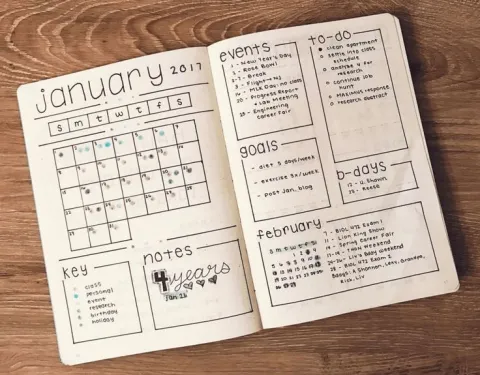 january 2017
s m t w t f s
key
class
personal
event
research
birthday
holiday
notes
4 years
Jan 26
events
1 - New Year's Day
2 - Rose Bowl
7 - Break
9 - Flight → NJ
16 - MLK Day: no class
20 - Progress Report
+ Lab Meeting
- Engineering
Career Fair
to-do
clean apartment
settle into class
schedule
analyze for
research
continue job
hunt
response
research abstract
goals
- diet 5 days/week
- exercise 3x/week
- post Jan. blog
b-days
12 - U. Shawn
- Reese
february
s m t w t f s
7 - BIOL 472 Exam 1
11 - Lion King Show
14 - Spring Career Fair
17-19 - THON Weekend
24-26 - Liv's Baby Weekend
28 - BIOL 472 Exam 2
Bdays: A. Shannon, Levi, Grandpa,
Rick, Liv